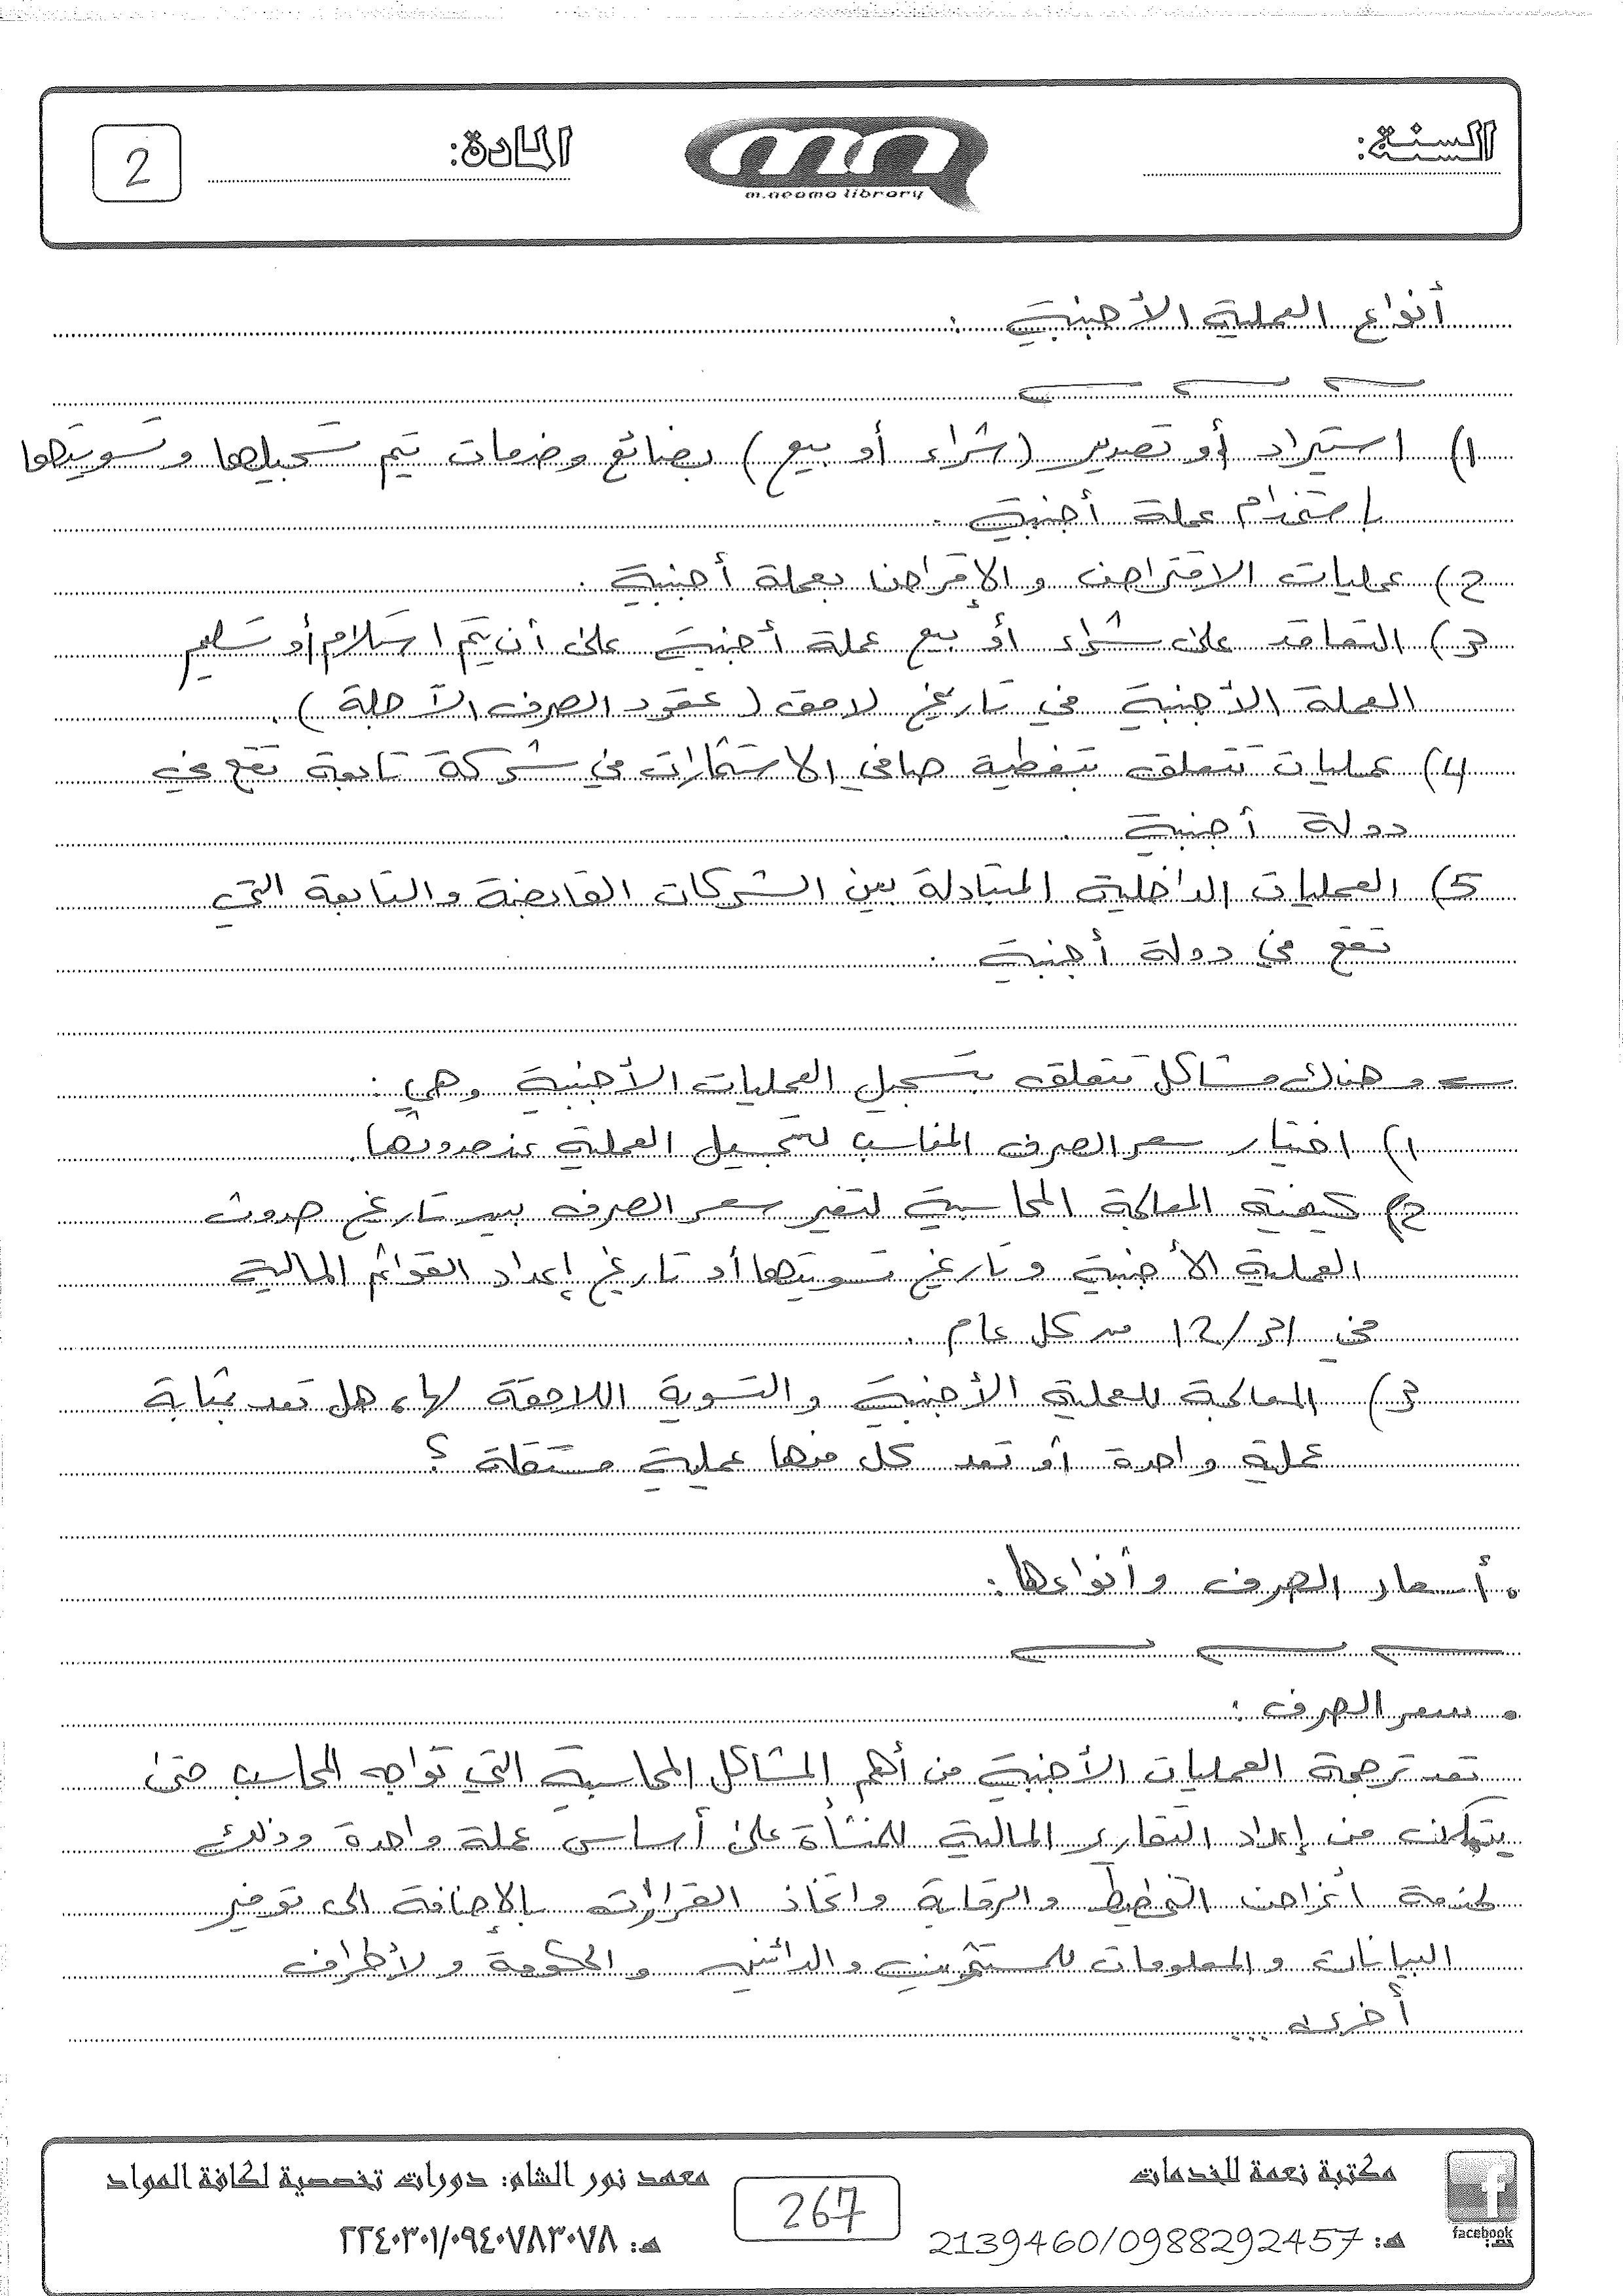 السنة:
m.neama library
المادة:
2
أنواع العملية الأجنبية :
1) استيراد أو تصدير (شراء أو بيع) بضائع وخدمات تيم تسجيلها وتسويتها
باستخدام عملة أجنبية .
2) عمليات الاقتراض والإقراض بعملة أجنبية .
3) التعاقد على شراء أو بيع عملة أجنبية على أن يتم استلام أو تسليم
العملة الأجنبية في تاريخ لاحق (عقود الصرف الآجلة) .
4) عمليات تتعلق بتغطية صافي الاستثمارات في شركة تابعة تقع في
دولة أجنبية .
5) العمليات الداخلية المتبادلة بين الشركات القابضة والتابعة التي
تقع في دولة أجنبية .
وهناك مشاكل تتعلق بتسجيل العمليات الأجنبية وهي :
1) اختيار سعر الصرف المناسب لتسجيل العملية عند حدوثها .
2) كيفية المعالجة المحاسبية لتغير سعر الصرف بين تاريخ حدوث
العملية الأجنبية وتاريخ تسويتها أو تاريخ إعداد القوائم المالية
في 31/12 من كل عام .
3) المعالجة للعملية الأجنبية والتسوية اللاحقة لها، هل تعد بمثابة
عملية واحدة أو تعد كل منها عملية مستقلة ؟
• أسعار الصرف وأنواعها :
• سعر الصرف :
تعد ترجمة العمليات الأجنبية من أهم المشاكل المحاسبية التي تواجه المحاسب حتى
يتمكن من إعداد التقارير المالية للمنشأة على أساس عملة واحدة وذلك
لخدمة أغراض التخطيط والرقابة واتخاذ القرارات بالإضافة الى توفير
البيانات والمعلومات للمستثمرين والدائنين والحكومة ولأطراف
أخرى ...
مكتبة نعمة للخدمات
هـ: 2139460/0988292457
facebook
267
معهد نور الشام: دورات تخصصية لكافة المواد
هـ: ٢٢٤٠٣٠١/٠٩٤٠٧٨٣٠٧٨